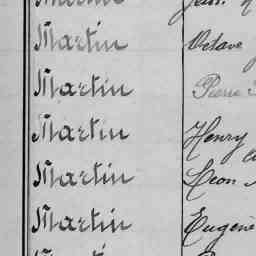 Martin Octave
Martin Pierre
Martin Henry
Martin Leon
Martin Eugène
Martin